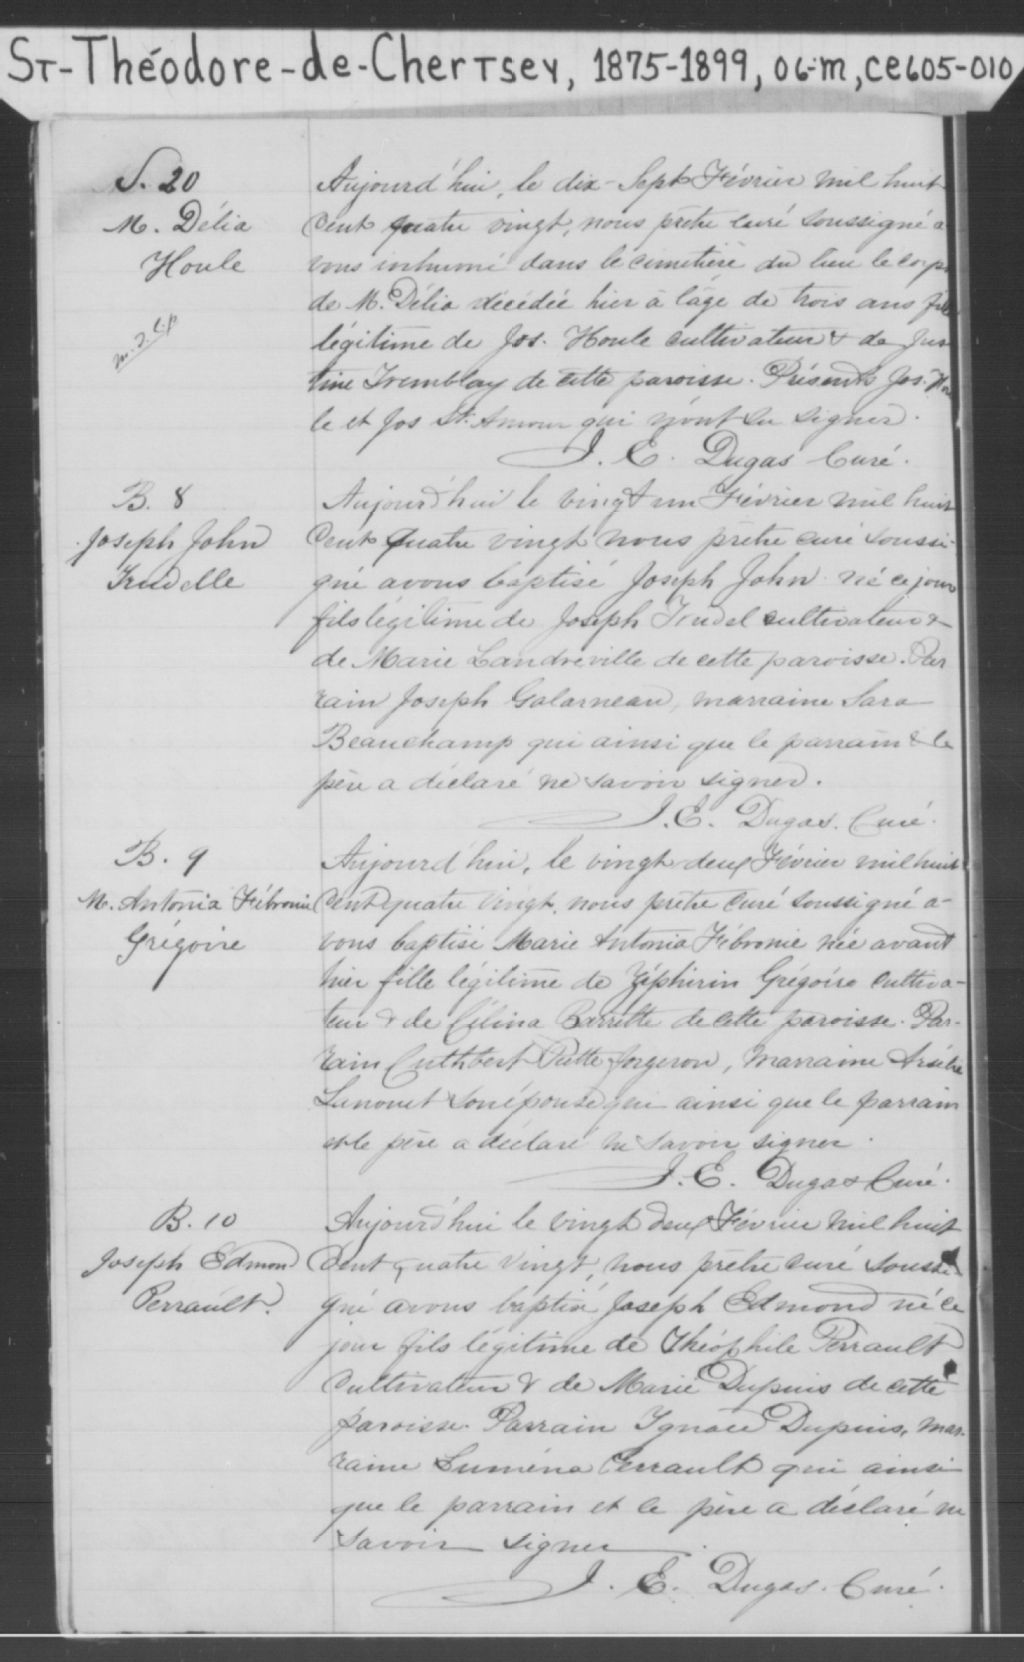 ST-Théodore-de-Chertsey, 1875-1899, 06-m, CE605-010
S. 20
M. Délia
Houle
Aujourd'hui, le dix-Sept Février mil huit
cent quatre vingt, nous prêtre curé soussigné a
vons inhumé dans le cimetière du lieu le corps
de M. Délia décédée hier à l'âge de trois ans fille
légitime de Jos. Houle cultivateur & de Jus
tine Tremblay de cette paroisse. Présents Jos. Hou
le et Jos St. Amour qui n'ont su signer.
J. E. Dugas Curé.
B. 8
Joseph John
Trudelle
Aujourd'hui le vingt un Février mil huit
cent quatre vingt nous prêtre curé soussi-
gné avons baptisé Joseph John né ce jour
fils légitime de Joseph Trudel cultivateur &
de Marie Landreville de cette paroisse. Par
rain Joseph Galarneau, marraine Sara
Beauchamp qui ainsi que le parrain & le
père a déclaré ne savoir signer.
J. E. Dugas. Curé.
B. 9
M. Antonia Fébronie
Grégoire
Aujourd'hui, le vingt deux Février mil huit
cent quatre vingt, nous prêtre curé soussigné a-
vons baptisé Marie Antonia Fébronie née avant
hier fille légitime de Zéphirin Grégoire cultiva-
teur & de Célina Barrette de cette paroisse. Par-
rain Cuthbert forgeron, marraine
son épouse qui ainsi que le parrain
et le père a déclaré ne savoir signer.
J. E. Dugas Curé.
B. 10
Joseph Edmond
Perrault.
Aujourd'hui le vingt deux Février mil huit
cent quatre vingt, nous prêtre curé soussi-
gné avons baptisé Joseph Edmond né ce
jour fils légitime de Théophile Perrault
cultivateur & de Marie Dupuis de cette
paroisse. Parrain Ignace Dupuis, mar-
raine Luména Perrault qui ainsi
que le parrain et le père a déclaré ne
savoir signer.
J. E. Dugas. Curé.